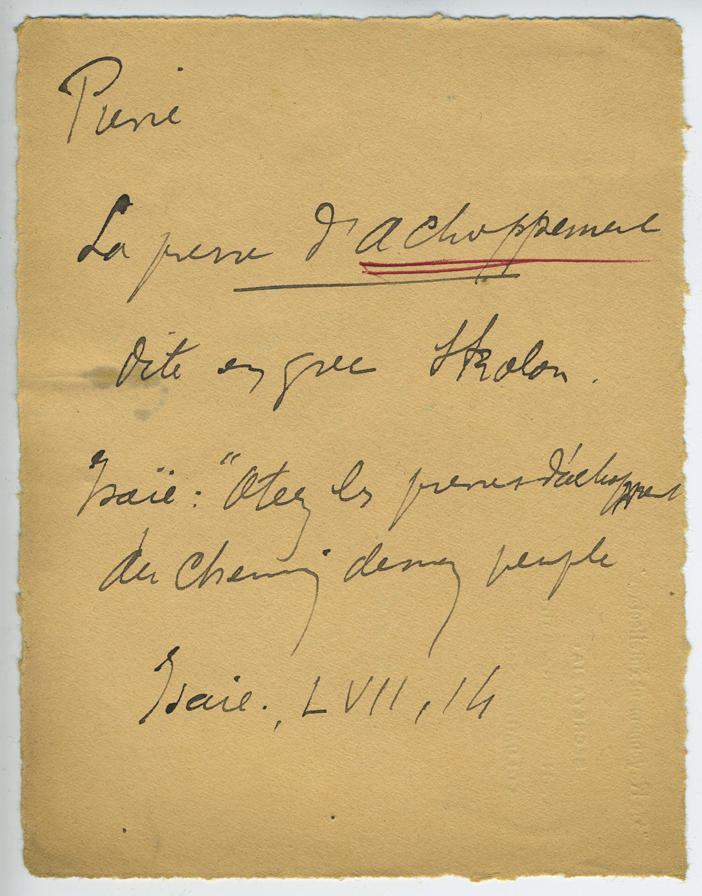 Pierre
La pierre d'achoppement
dite en grec Skolon.
Isaïe : "Otez les pierres d'achoppement
du chemin de mon peuple
Isaïe., LVII, 14